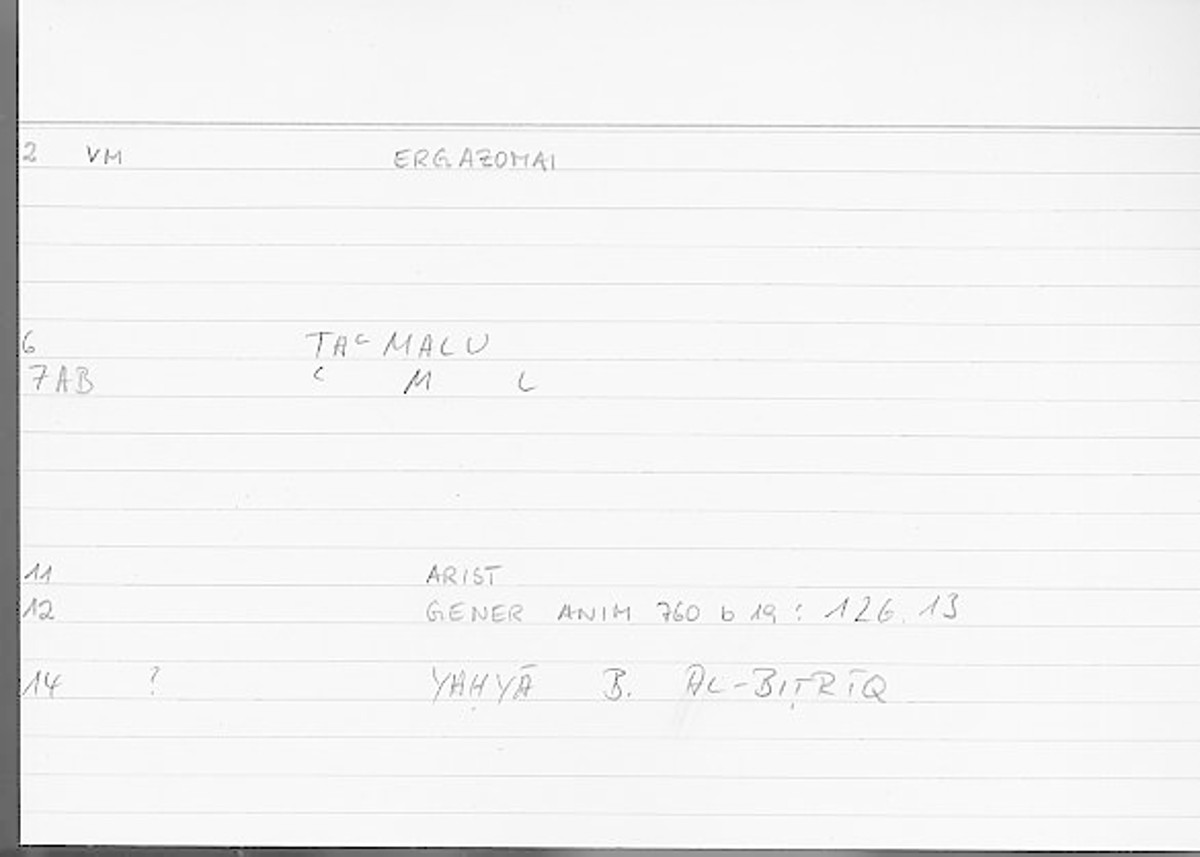 2 VM ERGAZOMAI
6 TAᶜMALU
7AB ᶜ M L
11 ARIST
12 GENER ANIM 760 b 19 : 126.13
14 ? YAḤYĀ B. AL-BIṬRĪQ